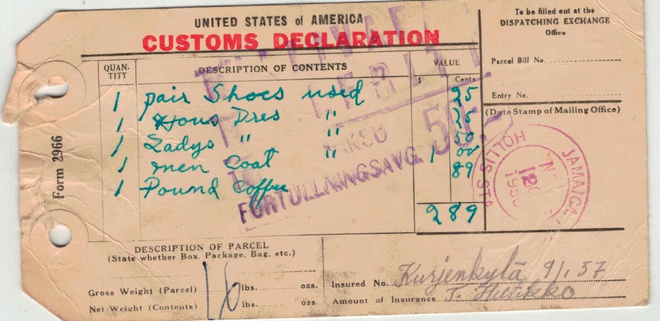 UNITED STATES of AMERICA
CUSTOMS DECLARATION
QUAN-
TITY
DESCRIPTION OF CONTENTS
VALUE
$ Cents
1 pair Shoes used 25
1 Hous Dres " 25
1 Ladys " " 50
1 men Coat 1 00
1 Pound Coffee 89
2 89
FÖRTULLNINGSAVG. 50
Form 2966
To be filled out at the
DISPATCHING EXCHANGE
Office
Parcel Bill No.
Entry No.
(Date Stamp of Mailing Office)
JAMAICA
HOLLIS STA
DESCRIPTION OF PARCEL
(State whether Box, Package, Bag, etc.)
Gross Weight (Parcel) lbs. ozs.
Net Weight (Contents) lbs. ozs.
10
Insured No. Kurjenkylä 9/1.37
Amount of Insurance